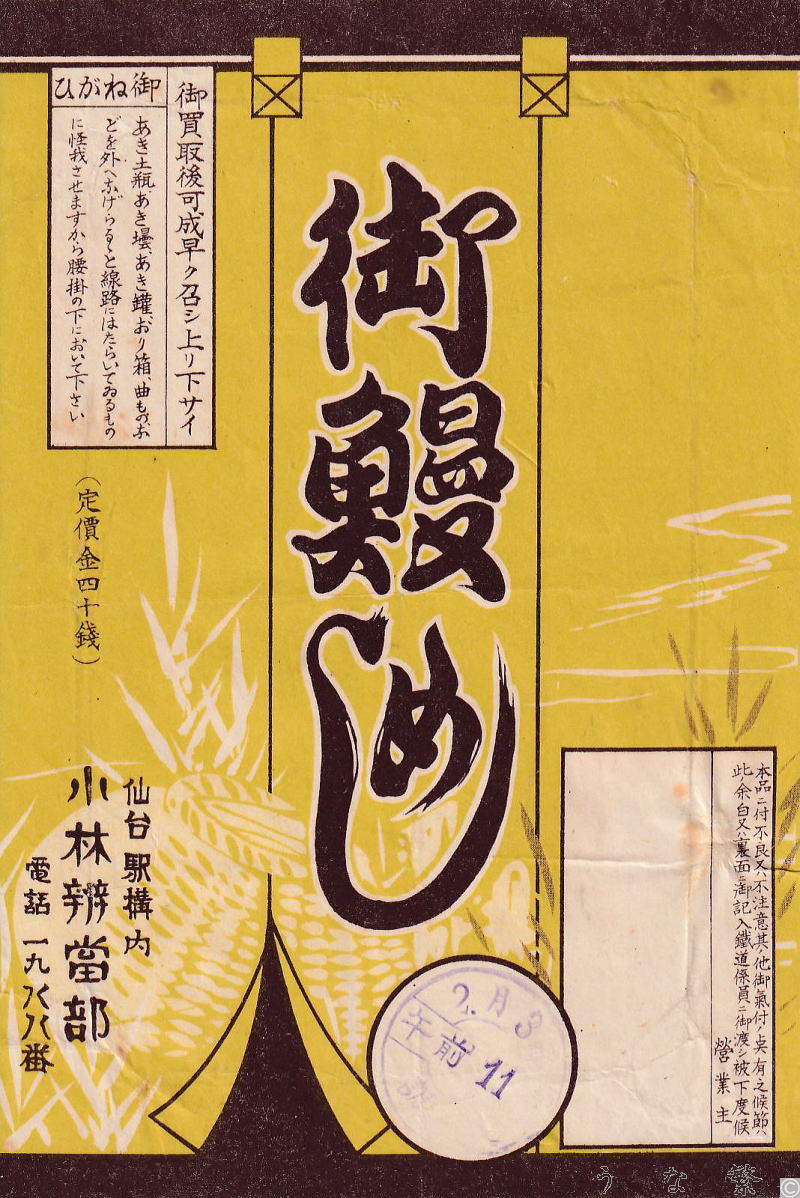 御鰻めし
御買取後可成早ク召シ上リ下サイ
御ねがひ
あき土瓶、あき壜、あき罐、おり箱、曲ものな
どを外へなげらるゝと線路にはたらいてゐるもの
に怪我させますから腰掛の下において下さい
(定價金四十錢)
仙台駅構内
小林辨當部
電話 一九八八番
2.月3
午前11
本品ニ付不良又ハ不注意其ノ他御氣付ノ点有之候節ハ
此ノ余白又ハ裏面ニ御記入鐵道係員ニ御渡シ被下度候
營業主
うな繁
©